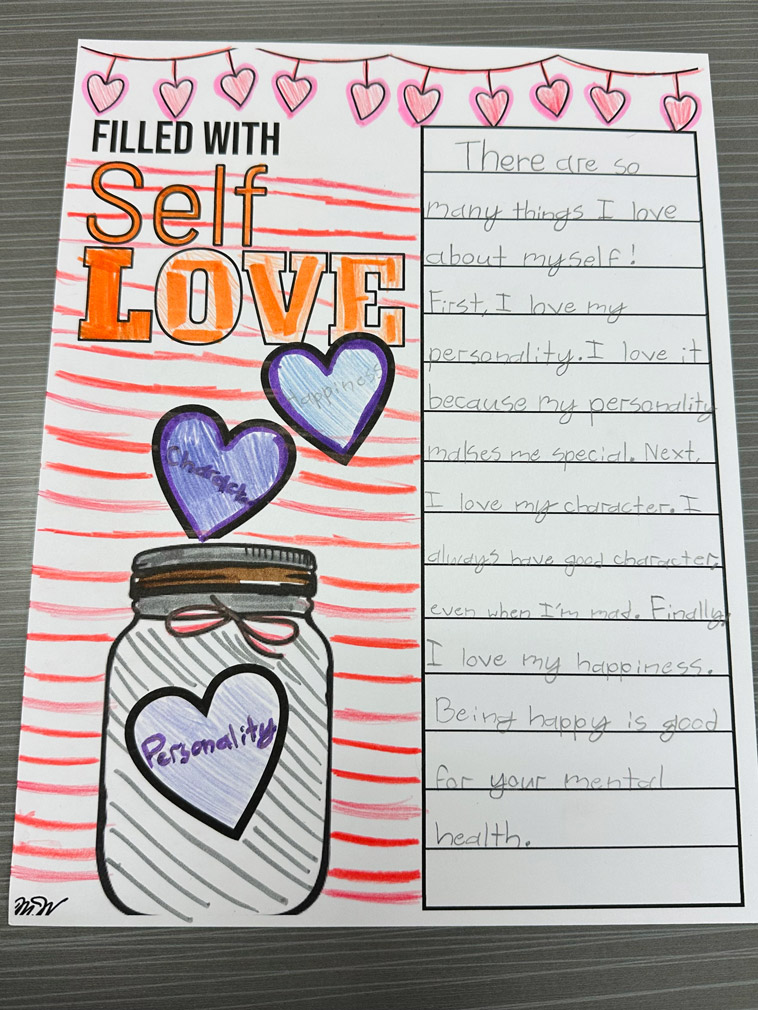 FILLED WITH
Self
LOVE
Happiness
Character
Personality
M.W
There are so
many things I love
about myself!
First, I love my
personality. I love it
because my personality
makes me special. Next,
I love my character. I
always have good character,
even when I'm mad. Finally,
I love my happiness.
Being happy is good
for your mental
health.